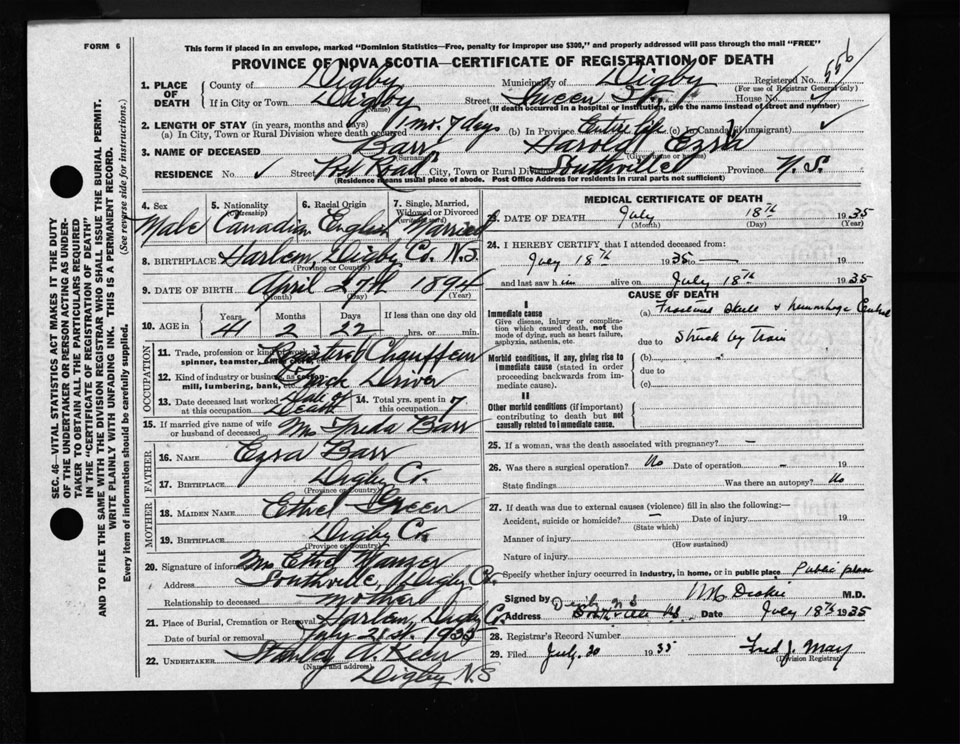 FORM 6
This form if placed in an envelope, marked "Dominion Statistics—Free, penalty for improper use $300," and properly addressed will pass through the mail "FREE"
PROVINCE OF NOVA SCOTIA—CERTIFICATE OF REGISTRATION OF DEATH
1. PLACE OF DEATH
County of Digby Municipality of Digby Registered No. 556
(For use of Registrar General only)
If in City or Town Digby Street Queen St. House No.
(Name)
(If death occurred in a hospital or institution, give the name instead of street and number)
2. LENGTH OF STAY (in years, months and days)
(a) In City, Town or Rural Division where death occurred 1 mo. 7 days (b) In Province Entire life (c) In Canada (if immigrant) ✓
3. NAME OF DECEASED Barr Harold Ezra
(Surname) (Given name or names)
RESIDENCE No. ✓ Street Post Road City, Town or Rural Div. Southville Province N. S.
(Residence means usual place of abode. Post Office Address for residents in rural parts not sufficient)
4. Sex Male
5. Nationality (Citizenship) Canadian
6. Racial Origin English
7. Single, Married, Widowed or Divorced (write the word) Married
8. BIRTHPLACE Harlem, Digby Co. N.S.
(Province or Country)
9. DATE OF BIRTH April 27th 1894
(Month) (Day) (Year)
10. AGE in Years 41 Months 2 Days 22 If less than one day old hrs. or min.
OCCUPATION
11. Trade, profession or kind of work as spinner, teamster, office clerk, etc. Chauffeur
12. Kind of industry or business, as cotton-mill, lumbering, bank, etc. Truck Driver
13. Date deceased last worked at this occupation Date of Death
14. Total yrs. spent in this occupation 7
15. If married give name of wife or husband of deceased Mrs Freda Barr
FATHER
16. NAME Ezra Barr
17. BIRTHPLACE Digby Co.
(Province or Country)
MOTHER
18. MAIDEN NAME Ethel Green
19. BIRTHPLACE Digby Co.
(Province or Country)
20. Signature of informant Mrs Ethel Wanzer
Address Southville, Digby Co.
Relationship to deceased mother
21. Place of Burial, Cremation or Removal Harlem, Digby Co.
Date of burial or removal July 21st. 1935
22. UNDERTAKER Stanley A.
(Name and address)
Digby N.S
MEDICAL CERTIFICATE OF DEATH
DATE OF DEATH July 18th 1935
(Month) (Day) (Year)
24. I HEREBY CERTIFY that I attended deceased from:
July 18th 1935 to —
and last saw him alive on July 18th 1935
CAUSE OF DEATH
I
Immediate cause
Give disease, injury or complication which caused death, not the mode of dying, such as heart failure, asphyxia, asthenia, etc.
(a) Fracture Skull + hemorrhage
due to Struck by Train
Morbid conditions, if any, giving rise to immediate cause (stated in order proceeding backwards from immediate cause).
(b)
due to
(c)
II
Other morbid conditions (if important) contributing to death but not causally related to immediate cause.
25. If a woman, was the death associated with pregnancy? —
26. Was there a surgical operation? No Date of operation — 19
State findings Was there an autopsy? No
27. If death was due to external causes (violence) fill in also the following:—
Accident, suicide or homicide? — Date of injury 19
(State which)
Manner of injury
(How sustained)
Nature of injury
Specify whether injury occurred in industry, in home, or in public place Public place
Signed by M.D.
Address Digby N S Date July 18th 1935
28. Registrar's Record Number
29. Filed July 20 1935 Fred J. May
(Division Registrar)
SEC. 46—VITAL STATISTICS ACT MAKES IT THE DUTY
OF THE UNDERTAKER OR PERSON ACTING AS UNDER-
TAKER TO OBTAIN ALL THE PARTICULARS REQUIRED
IN THE "CERTIFICATE OF REGISTRATION OF DEATH"
AND TO FILE THE SAME WITH THE DIVISION REGISTRAR WHO SHALL ISSUE THE BURIAL PERMIT.
WRITE PLAINLY WITH UNFADING INK. THIS IS A PERMANENT RECORD.
Every item of information should be carefully supplied. (See reverse side for instructions.)